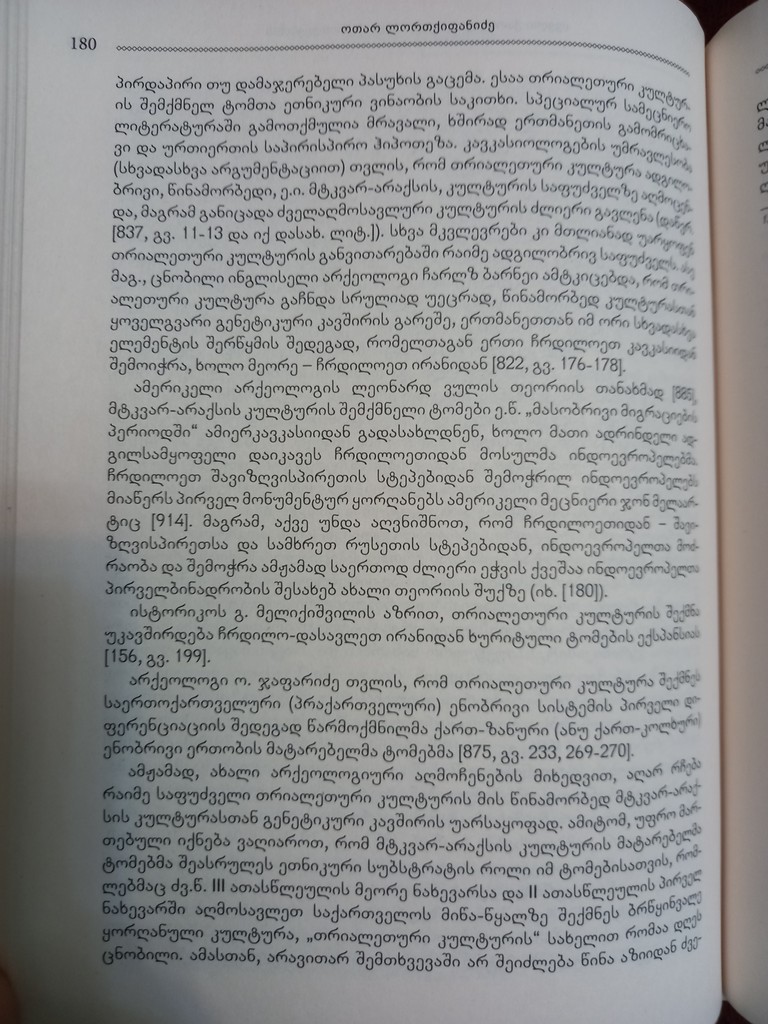 ოთარ ლორთქიფანიძე
180
პირდაპირი თუ დამაჯერებელი პასუხის გაცემა. ესაა თრიალეთური კულტურ-
ის შემქმნელ ტომთა ეთნიკური ვინაობის საკითხი. სპეციალურ სამეცნიერო
ლიტერატურაში გამოთქმულია მრავალი, ხშირად ერთმანეთის გამომრიცხა-
ვი და ურთიერთის საპირისპირო ჰიპოთეზა. კავკასიოლოგების უმრავლესობა
(სხვადასხვა არგუმენტაციით) თვლის, რომ თრიალეთური კულტურა ადგილო-
ბრივი, წინამორბედი, ე.ი. მტკვარ-არაქსის, კულტურის საფუძველზე აღმოცენ-
და, მაგრამ განიცადა ძველაღმოსავლური კულტურის ძლიერი გავლენა
[837, გვ. 11-13 და იქ დასახ. ლიტ.]). სხვა მკვლევრები კი მთლიანად უარყოფენ
თრიალეთური კულტურის განვითარებაში რაიმე ადგილობრივ საფუძველს. ასე
მაგ., ცნობილი ინგლისელი არქეოლოგი ჩარლზ ბარნეი ამტკიცებდა, რომ თრი-
ალეთური კულტურა გაჩნდა სრულიად უეცრად, წინამორბედ კულტურასთან
ყოველგვარი გენეტიკური კავშირის გარეშე, ერთმანეთთან იმ ორი სხვადასხვა
ელემენტის შერწყმის შედეგად, რომელთაგან ერთი ჩრდილოეთ კავკასიიდან
შემოიჭრა, ხოლო მეორე – ჩრდილოეთ ირანიდან [822, გვ. 176-178].
ამერიკელი არქეოლოგის ლეონარდ ვულის თეორიის თანახმად [885],
მტკვარ-არაქსის კულტურის შემქმნელი ტომები ე.წ. „მასობრივი მიგრაციების
პერიოდში“ ამიერკავკასიიდან გადასახლდნენ, ხოლო მათი ადრინდელი ად-
გილსამყოფელი დაიკავეს ჩრდილოეთიდან მოსულმა ინდოევროპელებმა.
ჩრდილოეთ შავიზღვისპირეთის სტეპებიდან შემოჭრილ ინდოევროპელებს
მიაწერს პირველ მონუმენტურ ყორღანებს ამერიკელი მეცნიერი ჯონ მელაარ-
ტიც [914]. მაგრამ, აქვე უნდა აღვნიშნოთ, რომ ჩრდილოეთიდან – შავი-
ზღვისპირეთსა და სამხრეთ რუსეთის სტეპებიდან, ინდოევროპელთა მოძ-
რაობა და შემოჭრა ამჟამად საერთოდ ძლიერი ეჭვის ქვეშაა ინდოევროპელთა
პირველბინადრობის შესახებ ახალი თეორიის შუქზე (იხ. [180]).
ისტორიკოს გ. მელიქიშვილის აზრით, თრიალეთური კულტურის შექმნა
უკავშირდება ჩრდილო-დასავლეთ ირანიდან ხურიტული ტომების ექსპანსიას
[156, გვ. 199].
არქეოლოგი ო. ჯაფარიძე თვლის, რომ თრიალეთური კულტურა შექმნეს
საერთოქართველური (პრაქართველური) ენობრივი სისტემის პირველი დი-
ფერენციაციის შედეგად წარმოქმნილმა ქართ-ზანური (ანუ ქართ-კოლხური)
ენობრივი ერთობის მატარებელმა ტომებმა [875, გვ. 233, 269-270].
ამჟამად, ახალი არქეოლოგიური აღმოჩენების მიხედვით, აღარ რჩება
რაიმე საფუძველი თრიალეთური კულტურის მის წინამორბედ მტკვარ-არაქ-
სის კულტურასთან გენეტიკური კავშირის უარსაყოფად. ამიტომ, უფრო მარ-
თებული იქნება ვაღიაროთ, რომ მტკვარ-არაქსის კულტურის მატარებელმა
ტომებმა შეასრულეს ეთნიკური სუბსტრატის როლი იმ ტომებისათვის, რომ-
ლებმაც ძვ.წ. III ათასწლეულის მეორე ნახევარსა და II ათასწლეულის პირველ
ნახევარში აღმოსავლეთ საქართველოს მიწა-წყალზე შექმნეს ბრწყინვალე
ყორღანული კულტურა, „თრიალეთური კულტურის“ სახელით რომაა დღეს
ცნობილი. ამასთან, არავითარ შემთხვევაში არ შეიძლება წინა აზიიდან ძვე-